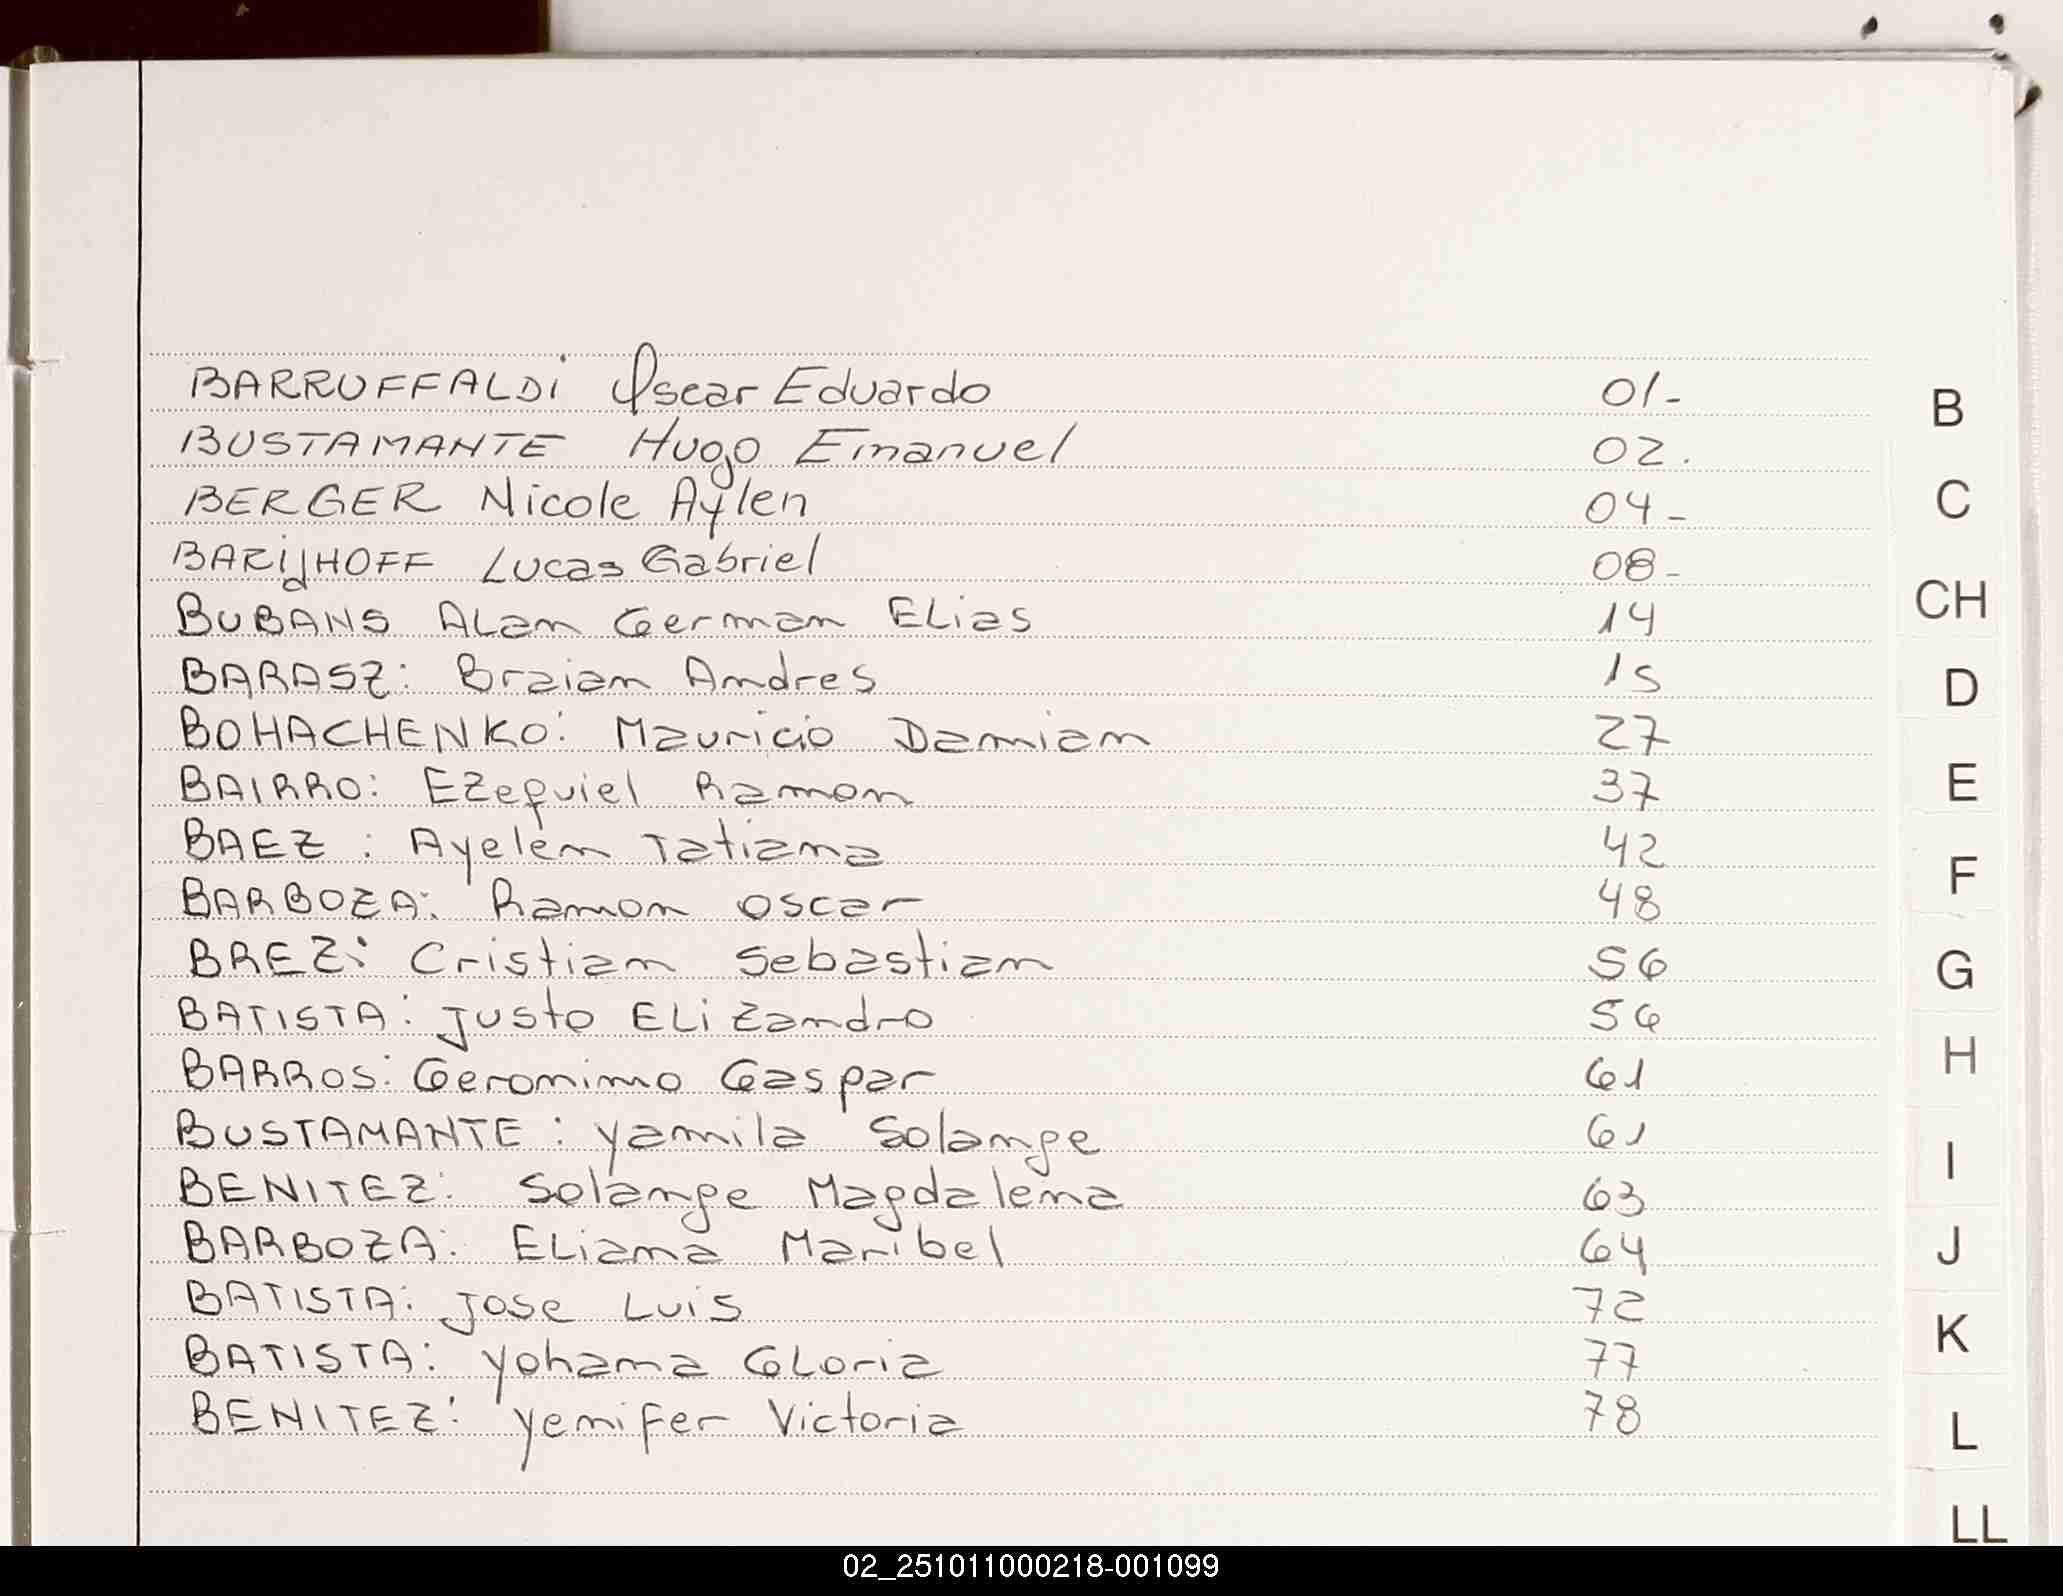 BARRUFFALDI Oscar Eduardo 01-
BUSTAMANTE Hugo Emanuel 02.
BERGER Nicole Aylen 04-
BARIJHOFF Lucas Gabriel 08-
BUBANS ALan German ELias 14
BARASZ: Braian Andres 15
BOHACHENKO: Mauricio Damian 27
BAIRRO: EZequiel Ramon 37
BAEZ : Ayelén Tatiana 42
BARBOZA: Ramon oscar 48
BREZ: Cristian Sebastian 56
BATISTA: Justo ELiZandro 56
BARROS: Geronimo Gaspar 61
BUSTAMANTE: yamila Solange 61
BENITEZ: Solange Magdalena 63
BARBOZA: ELiana Maribel 64
BATISTA: Jose Luis 72
BATISTA: yohana GLoria 77
BENITEZ: yenifer Victoria 78
B
C
CH
D
E
F
G
H
I
J
K
L
LL
02_251011000218-001099